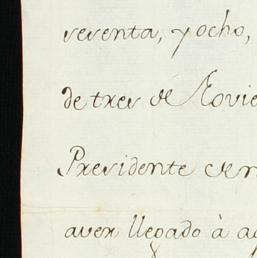 sesenta, y ocho,
de tres de Novie
Presidente en
aver llegado à a